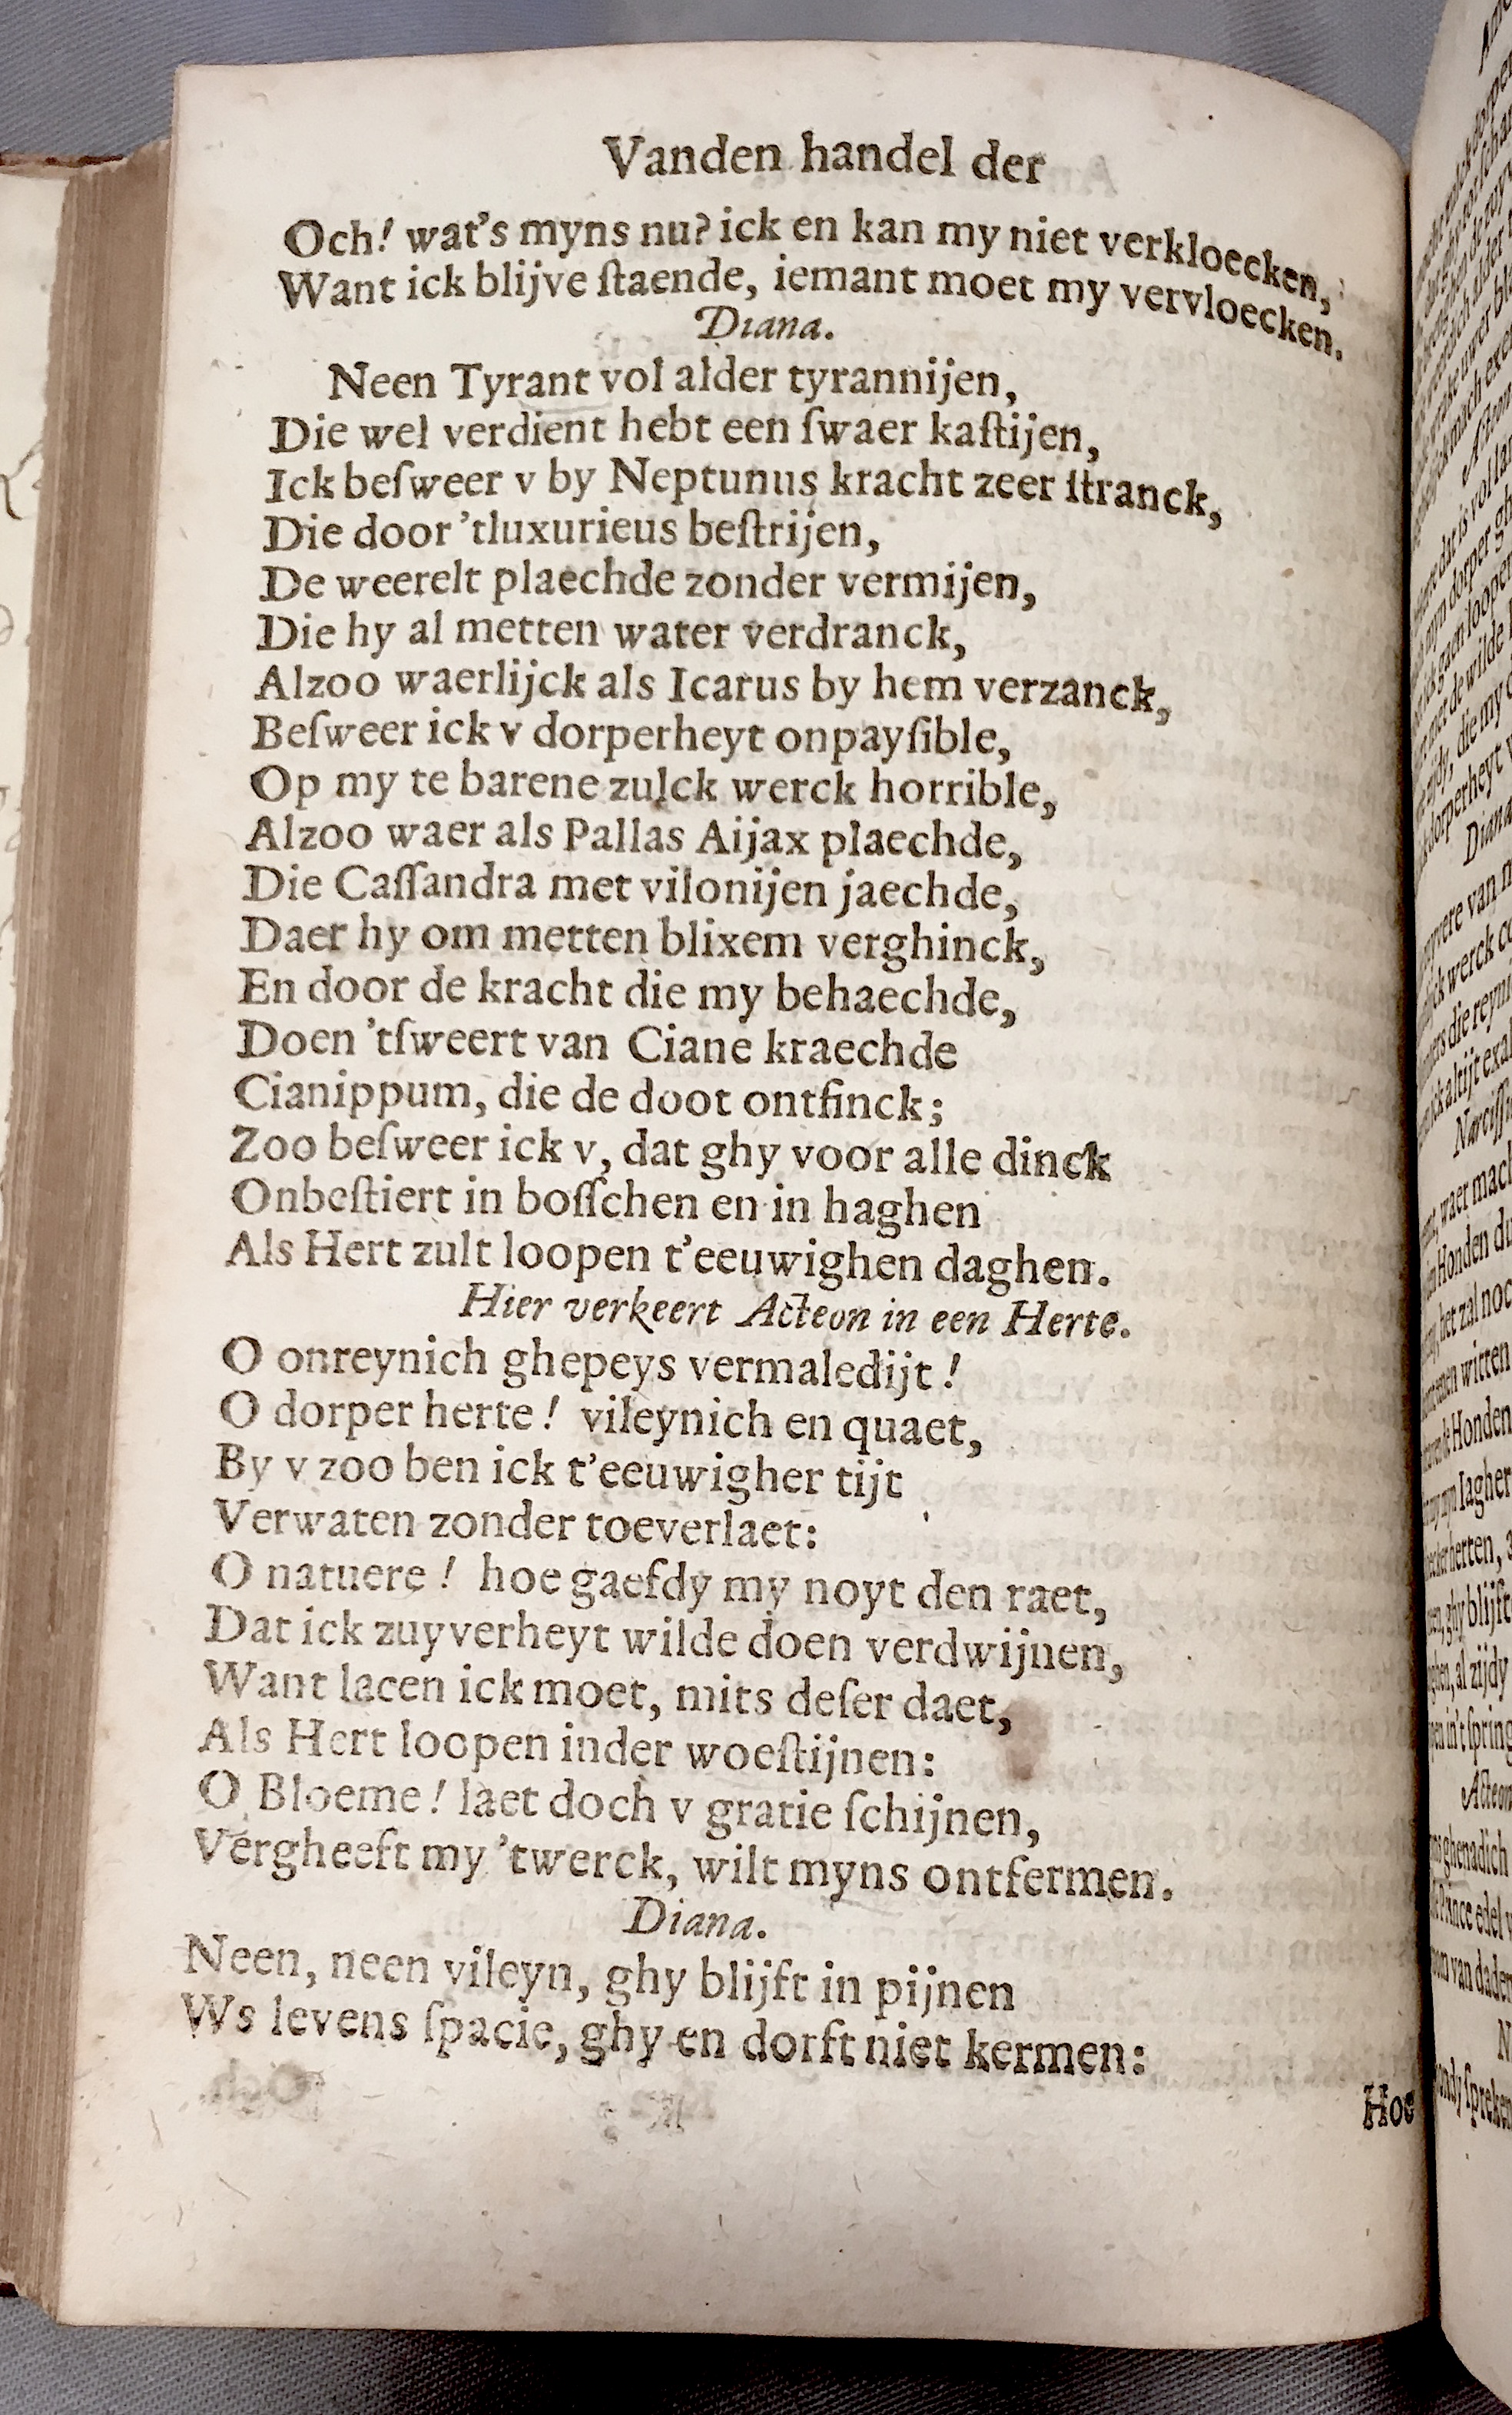 Vanden handel der
Och! wat's myns nu? ick en kan my niet verkloecken,
Want ick blijve ſtaende, iemant moet my vervloecken.
Diana.
Neen Tyrant vol alder tyrannijen,
Die wel verdient hebt een ſwaer kaſtijen,
Ick beſweer v by Neptunus kracht zeer ſtranck,
Die door 'tluxurieus beſtrijen,
De weerelt plaechde zonder vermijen,
Die hy al metten water verdranck,
Alzoo waerlijck als Icarus by hem verzanck,
Beſweer ick v dorperheyt onpayſible,
Op my te barene zulck werck horrible,
Alzoo waer als Pallas Aijax plaechde,
Die Caſſandra met vilonijen jaechde,
Daer hy om metten blixem verghinck,
En door de kracht die my behaechde,
Doen 'tſweert van Ciane kraechde
Cianippum, die de doot ontfinck;
Zoo beſweer ick v, dat ghy voor alle dinck
Onbeſtiert in boſſchen en in haghen
Als Hert zult loopen t'eeuwighen daghen.
Hier verkeert Acteon in een Herte.
O onreynich ghepeys vermaledijt!
O dorper herte! vileynich en quaet,
By v zoo ben ick t'eeuwigher tijt
Verwaten zonder toeverlaet:
O natuere! hoe gaefdy my noyt den raet,
Dat ick zuyverheyt wilde doen verdwijnen,
Want lacen ick moet, mits deſer daet,
Als Hert loopen inder woeſtijnen:
O Bloeme! laet doch v gratie ſchijnen,
Vergheeft my 'twerck, wilt myns ontfermen.
Diana.
Neen, neen vileyn, ghy blijft in pijnen
Ws levens ſpacie, ghy en dorft niet kermen:
Hoe